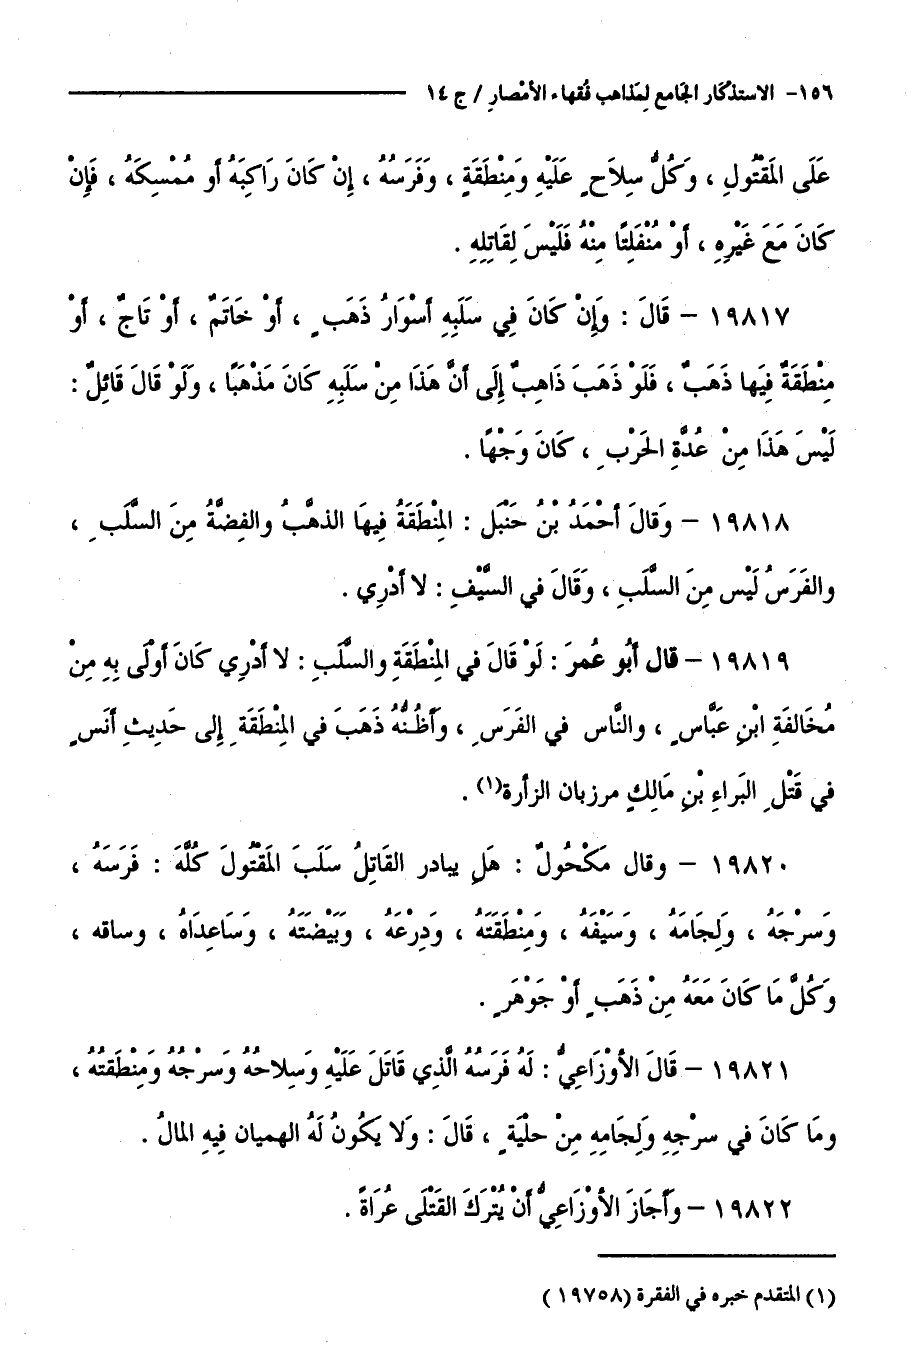 ١٥٦- الاستذكار الجامع لمذاهب فقهاء الأمصار / ج ١٤
عَلَى المَقْتُولِ ، وَكُلُّ سِلاَحٍ عَلَيْهِ وَمِنْطَقَةٍ ، وَفَرَسُهُ ، إِنْ كَانَ رَاكِبَهُ أَو مُمْسِكَهُ ، فَإِنْ
كَانَ مَعَ غَيْرِهِ ، أَوْ مُنْفَلِتًا مِنْهُ فَلَيْسَ لِقَاتِلِهِ .
١٩٨١٧ – قَالَ : وَإِنْ كَانَ فِي سَلَبِهِ أَسْوَارُ ذَهَبٍ ، أَوْ خَاتَمٌ ، أَوْ تَاجٌ ، أَوْ
مِنْطَقَةٌ فِيَها ذَهَبٌ ، فَلَوْ ذَهَبَ ذَاهِبٌ إِلَى أَنَّ هَذَا مِنْ سَلَبِهِ كَانَ مَذْهَبًا ، وَلَوْ قَالَ قَائِلٌ :
لَيْسَ هَذَا مِنْ عُدَّةِ الحَرْبِ ، كَانَ وَجْهًا .
١٩٨١٨ – وَقَالَ أَحْمَدُ بْنُ حَنْبَل : المِنْطَقَةُ فِيهَا الذهَّبُ والفِضَّةُ مِنَ السَّلَبِ ،
والفَرَسُ لَيْس مِنَ السَّلَبِ ، وَقَالَ في السَّيْفِ : لا أَدْرِي .
١٩٨١٩ – قال أَبُو عُمرَ : لَوْ قَالَ في المِنْطَقَةِ والسَّلَبِ : لا أَدْرِي كَانَ أَوْلَى بِهِ مِنْ
مُخَالفَةِ ابْنِ عَبَّاسٍ ، والنَّاس في الفَرَسِ ، وَأَظُنُّهُ ذَهَبَ في المِنْطَقَةِ إِلى حَدِيثِ أَنَسٍ
في قَتْلِ البَراءِ بْنِ مَالِكٍ مرزبان الزأرة(١) .
١٩٨٢٠ – وقال مَكْحُولٌ : هَلِ يبادر القَاتِلُ سَلَبَ المَقْتُولَ كُلَّهَ : فَرَسَهُ ،
وَسرْجَهُ ، وَلِجَامَهُ ، وَسَيْفَهُ ، وَمِنْطَقَتَهُ ، وَدِرْعَهُ ، وَبَيْضَتَهُ ، وَسَاعِدَاهُ ، وساقه ،
وَكُلَّ مَا كَانَ مَعَهُ مِنْ ذَهَبٍ أَوْ جَوْهَرٍ .
١٩٨٢١ – قَالَ الأَوْزَاعِيُّ : لَهُ فَرَسُهُ الَّذِي قَاتَلَ عَلَيْهِ وَسِلاحُهُ وَسرْجُهُ وَمِنْطَقتُهُ ،
ومَا كَانَ في سرْجِهِ وَلِجَامِهِ مِنْ حليَةٍ ، قَالَ : وَلا يَكُونُ لَهُ الهميان فِيهِ المالُ .
١٩٨٢٢ – وَأَجَازَ الأَوْزَاعِيُّ أَنْ يُتْرَكَ القَتْلَى عُرَاةً .
(١) المتقدم خبره في الفقرة (١٩٧٥٨)